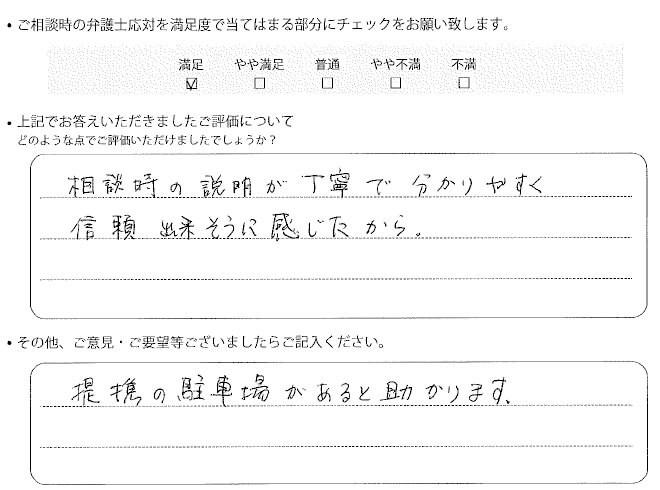 ・ご相談時の弁護士応対を満足度で当てはまる部分にチェックをお願い致します。
満足 やや満足 普通 やや不満 不満
☑ □ □ □ □
・上記でお答えいただきましたご評価について
どのような点でご評価いただけましたでしょうか？
相談時の説明が丁寧で分かりやすく
信頼出来そうに感じたから。
・その他、ご意見・ご要望等ございましたらご記入ください。
提携の駐車場があると助かります。